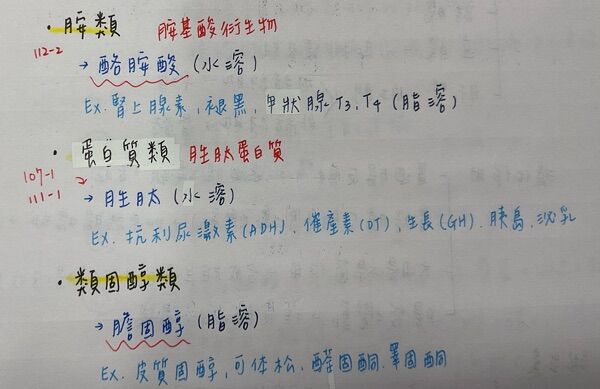 • 胺類 胺基酸衍生物
112-2
→ 酪胺酸 (水溶)
Ex. 腎上腺素, 褪黑, 甲狀腺T3, T4 (脂溶)
• 蛋白質類 胜肽蛋白質
107-1
111-1 2
→ 胜肽 (水溶)
Ex. 抗利尿激素(ADH), 催產素(OT), 生長(GH). 胰島, 泌乳
• 類固醇類
→ 膽固醇 (脂溶)
Ex. 皮質固醇, 可体松, 醛固酮. 睪固酮